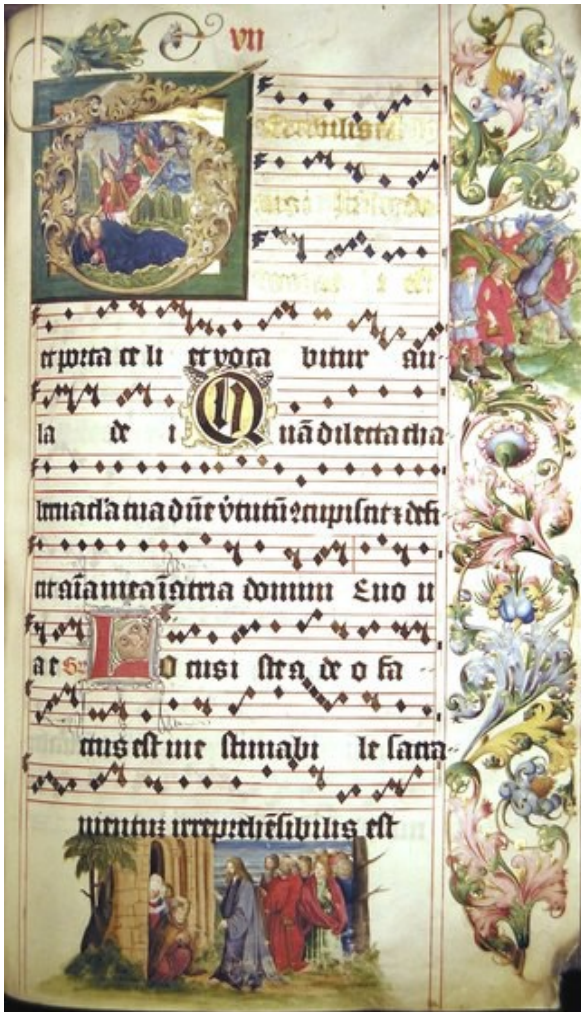 vii
erribilis
et porta ce li et voca bitur au
la de i Quā dilecta tha
bernacl'a tua dūe v̓tutū ꝯcupiscit ⁊ defi
cit aīa mea ī atria domini Euo u
a e L o cus i ste a de o fa
ctus est ine stimabi le sacra
mentuz irreprehēsibilis est